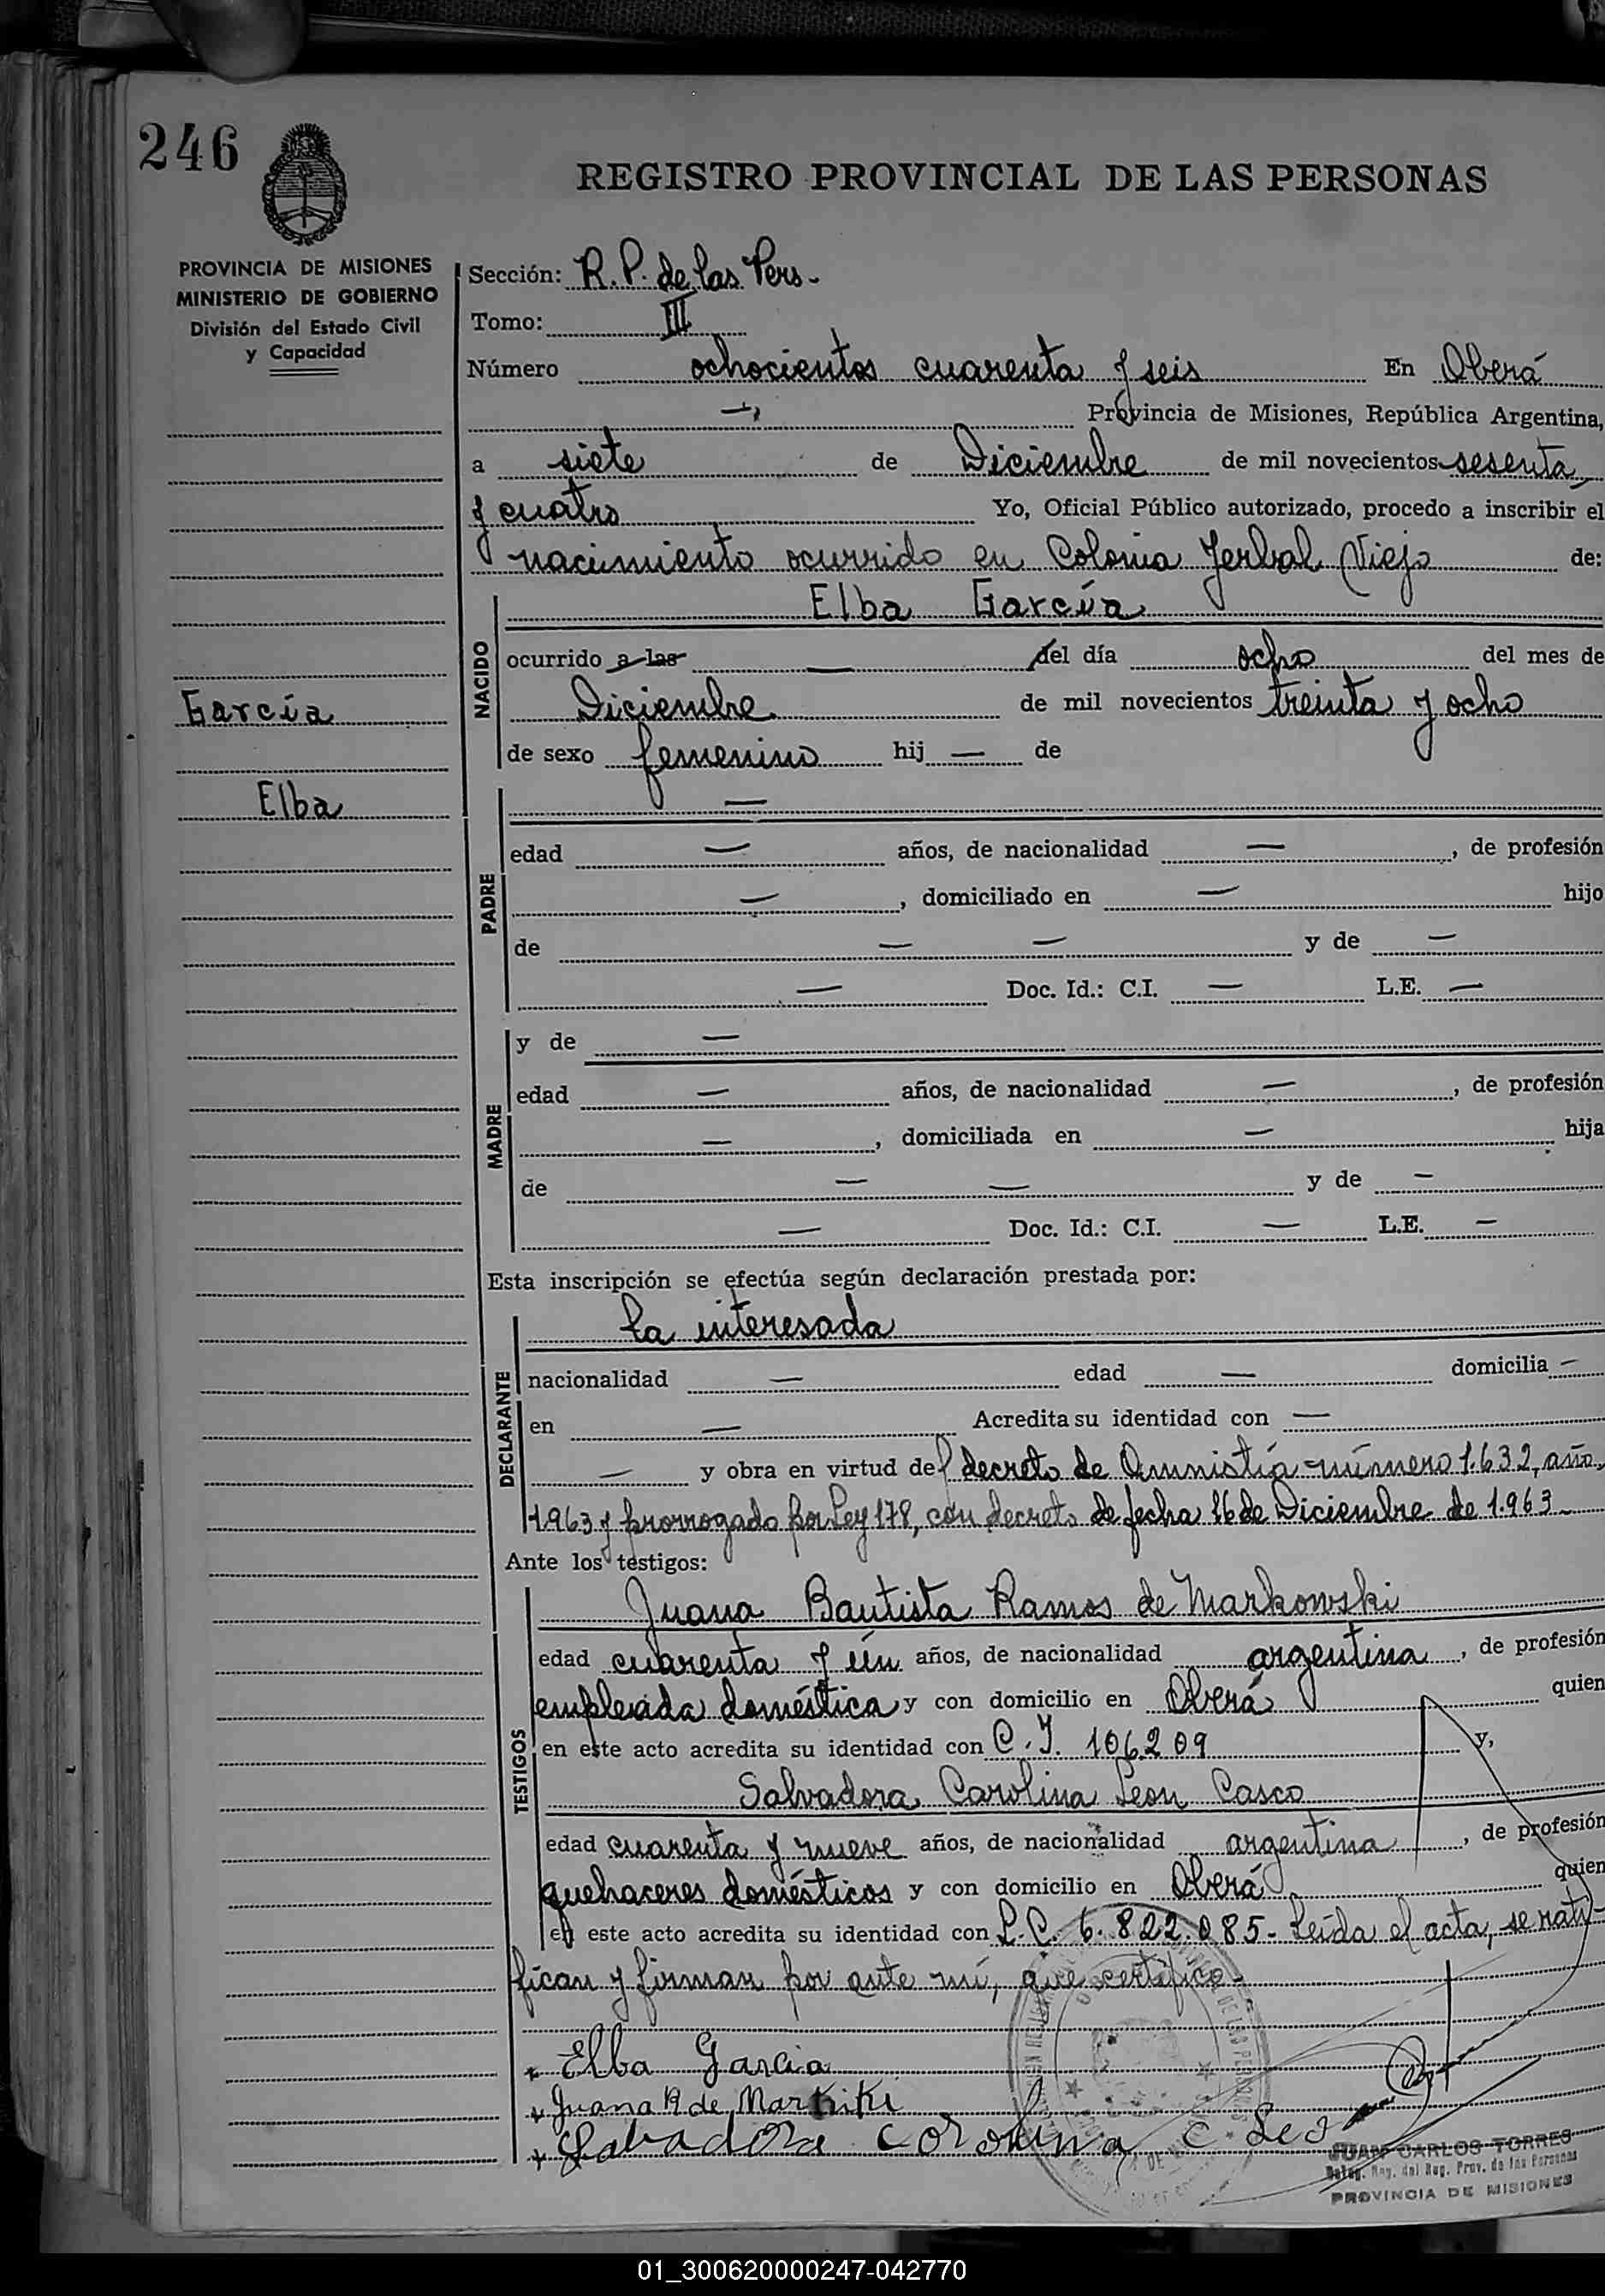 246
REGISTRO PROVINCIAL DE LAS PERSONAS
PROVINCIA DE MISIONES
MINISTERIO DE GOBIERNO
División del Estado Civil
y Capacidad
Sección: R. P. de las Pers.
Tomo: III
Número ochocientos cuarenta y seis En Oberá
Provincia de Misiones, República Argentina,
a siete de Diciembre de mil novecientos sesenta
y cuatro Yo, Oficial Público autorizado, procedo a inscribir el
nacimiento ocurrido en Colonia Yerbal Viejo de:
NACIDO
Elba García
ocurrido a las — del día ocho del mes de
García
Diciembre de mil novecientos treinta y ocho
de sexo femenino hij — de
Elba
PADRE
—
edad — años, de nacionalidad —, de profesión
—, domiciliado en — hijo
de — — y de —
— Doc. Id.: C.I. — L.E. —
MADRE
y de —
edad — años, de nacionalidad —, de profesión
—, domiciliada en — hija
de — — y de —
— Doc. Id.: C.I. — L.E. —
Esta inscripción se efectúa según declaración prestada por:
DECLARANTE
La interesada
nacionalidad — edad — domicilia —
en — Acredita su identidad con —
— y obra en virtud del decreto de Amnistía número 1.632, año
1963 y prorrogado por Ley 178, con decreto de fecha 16 de Diciembre de 1.963
Ante los testigos:
TESTIGOS
Juana Bautista Ramos de Markowski
edad cuarenta y ún años, de nacionalidad argentina, de profesión
empleada doméstica y con domicilio en Oberá quien
en este acto acredita su identidad con C. I. 106209 y,
Salvadora Carolina Leon Casco
edad cuarenta y nueve años, de nacionalidad argentina, de profesión
quehaceres domésticos y con domicilio en Oberá quien
en este acto acredita su identidad con L. C. 6.822.085- Leída el acta, se rati-
fican y firman por ante mí, que certifico-
Elba Garcia
Juana R de
Carolina C.
JUAN CARLOS TORRES
Deleg. Reg. del Reg. Prov. de las Personas
PROVINCIA DE MISIONES
01_300620000247-042770